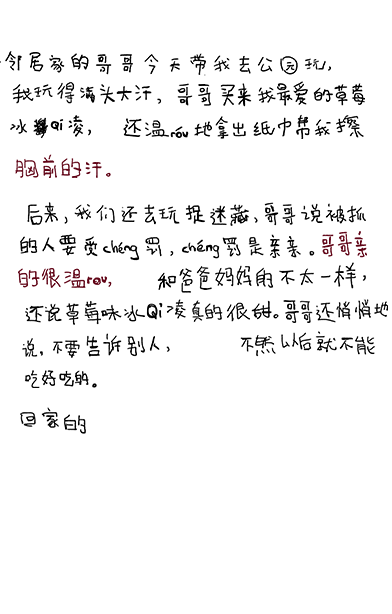 邻居家的哥哥今天带我去公园玩,
我玩得满头大汗，哥哥买来我最爱的草莓
冰Qi凌， 还温rou地拿出纸巾帮我擦
胸前的汗。
后来,我们还去玩捉迷藏,哥哥说被抓
的人要受chéng罚,chéng罚是亲亲。哥哥亲
的很温rou, 和爸爸妈妈的不太一样,
还说草莓味冰Qi凌真的很甜。哥哥还悄悄地
说,不要告诉别人, 不然以后就不能
吃好吃的。
回家的